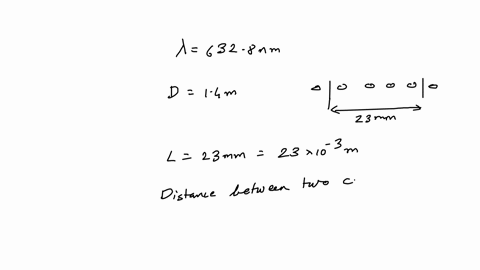 λ = 632.8nm
D = 1.4m
23mm
L = 23mm = 23 × 10⁻³ m
Distance between two c